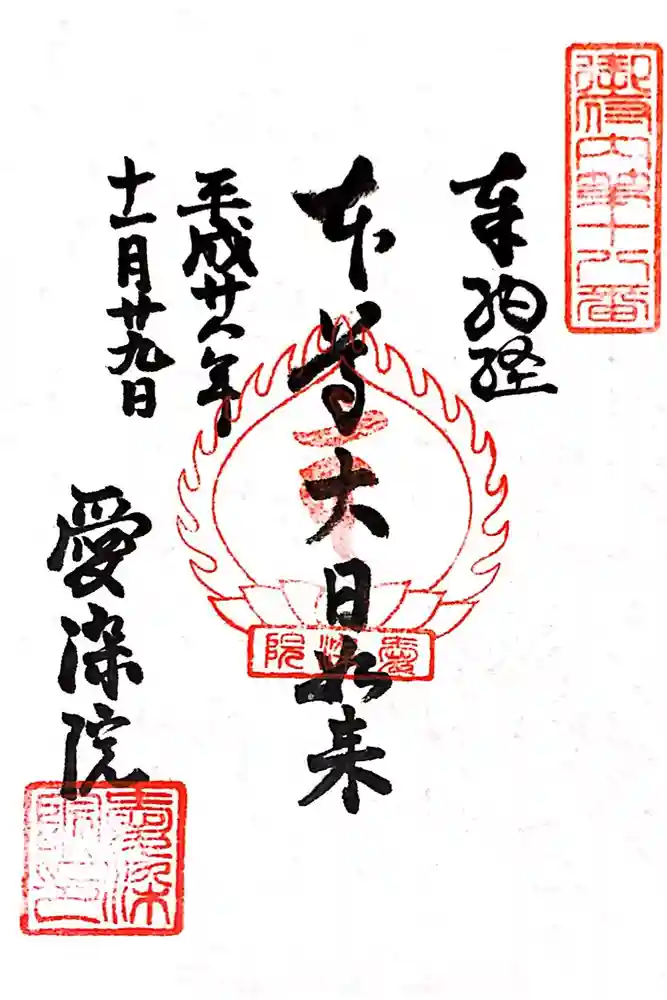 御府内第十八番
奉納経
本尊大日如来
愛染院
平成廿八年
十一月廿九日
愛染院
愛染院印